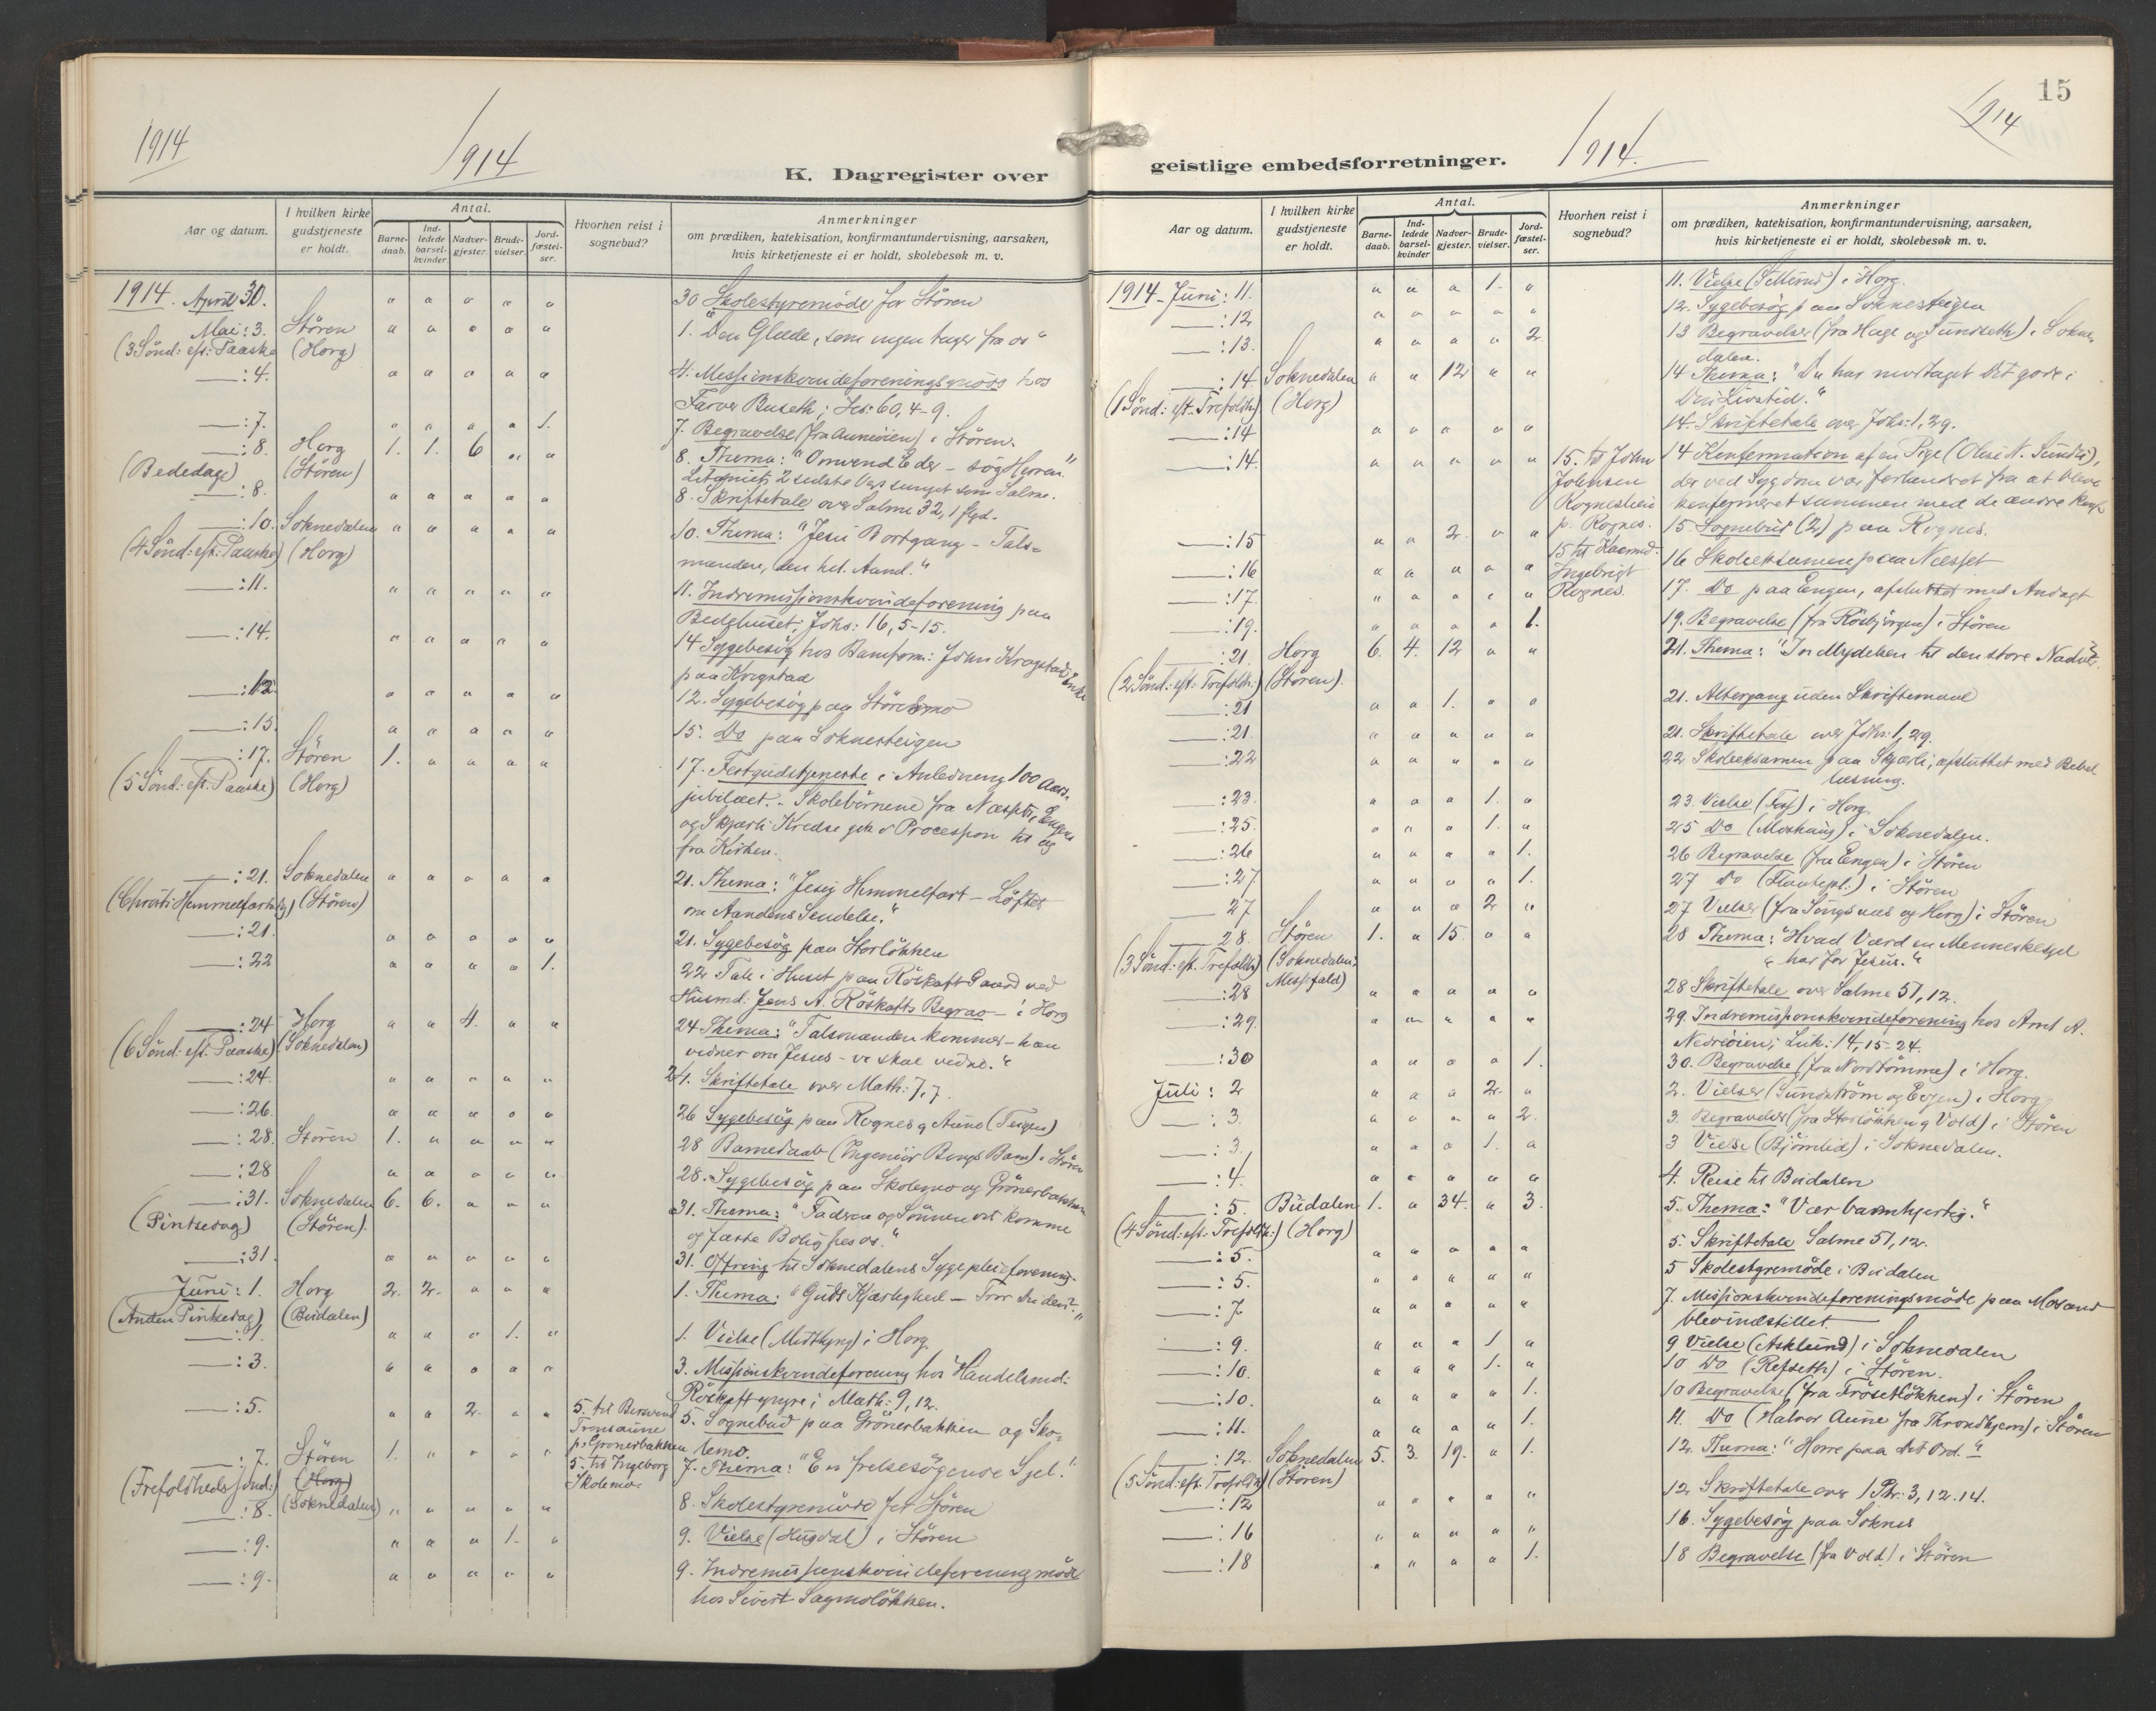 1914
1914
K. Dagregister over
Aar og datum.
I hvilken kirke gudstjeneste er holdt.
Antal.
Barne-daab.
Ind-ledede barsel-kvinder.
Nadver-gjester.
Brude-vielser.
Jord-fæstel-ser.
Hvorhen reist i sognebud?
Anmerkninger
om prædiken, katekisation, konfirmantundervisning, aarsaken,
hvis kirketjeneste ei er holdt, skolebesøk m. v.
1914. April 30. " " " " " 30 Skolestyremöde for Stören
Mai: 3. Stören " " " " " 1. "Den Glæde, som ingen tager fra os"
(3 Sönd: eft: Paaske) (Horg)
—:4. " " " " " 4. Missionskvindeforeningsmöde hos
Farver Buseth; Jes: 60, 4-9.
—:7. " " " " 1. 7. Begravelse (fra Auneöien) i Stören.
—:8. Horg 1. 1. 6 " " 8. Thema: "Omvend Eder - søg Herren"
(Bededag) (Stören) Litaniets 2 sidste Vers sunget som Salme.
—:8. " " " " " 8. Skriftetale over Salme 32, 1 flgd.
—:10. Soknedalen " " " " " 10. Thema: "Jesu Bortgang - Tals-
(4 Sönd: eft: Paaske) (Horg) manden, den hel. Aand."
—:11. " " " " " 11. Indremissionskvindeforening paa
Bedehuset; Johs: 16, 5-15.
—:14. " " " " " 14 Sygebesög hos Banform: John Krogstads Enke
paa Krogstad
—:12. " " " " " 12. Sygebesög paa Störenmo
—:15. " " " " " 15. Do paa Soknesteigen
—:17. Stören 1. " " " " 17. Festgudstjeneste i Anledning 100 Aars-
(5 Sönd: eft: Paaske) (Horg) jubilæet. - Skolebörnene fra Næsset, Engen
og Skjærli Kredse gik i Procession til og
fra Kirken.
—:21. Soknedalen " " " " " 21. Thema: "Jesu Himmelfart - Löftet
(Christi Himmelfartsdag) (Stören) om Aandens Sendelse."
—:21. " " " " " 21. Sygebesög paa Storlökken
—:22 " " " " 1. 22. Tale i Huset paa Röskaft Gaard ved
Husmd: Jens A. Röskafts Begrav - i Horg
—:24 Horg " " 4. " " 24 Thema: "Talsmanden kommer - han
(6 Sönd: eft. Paaske) (Soknedalen) vidner om Jesus - vi skal vidne."
—:24. " " " " " 24. Skriftetale over Math: 7, 7.
—:26. " " " " " 26 Sygebesög paa Rognes og Aune (Teigen)
—:28. Stören 1. " " " " 28 Barnedaab (Ingeniör Bergs Barn) i Stören
—:28 " " " " " 28. Sygebesög paa Skolemo og Grönerbakken
—:31. Soknedalen 6. 6. " " " 31. Thema: "Faderen og Sönnen vil komme
(Pintsedag) (Stören). og fæste Bolig hos os."
—:31. " " " " " 31. Offring til Soknedalens Sygepleieforening.
Juni: 1. Horg 2. 2. " " " 1. Thema: "Guds Kjærlighed - Tror du den?"
(Anden Pintsedag) (Budalen)
—:1. " " " 1. " 1. Vielse (Midtlyng) i Horg
—:3. " " " " " 3. Missionskvindeforening hos Handelsmd:
Röskaft yngre; Math: 9, 12.
—:5. " " 2. " " 5. til Berntine 5. Sognebud paa Grönerbakken og Sko-
Tronsaune
p: Grönerbakken lemo.
—:7. Stören 1. " " " " 5. til Ingeborg 7. Thema: "En frelsesögende Sjel."
(Trefoldheds sönd:) (Horg) Skolemo
(Soknedalen)
—:8. " " " " " 8. Skolestyremöde for Stören
—:9. " " " 1. " 9. Vielse (Hugdal) i Stören
—:9. " " " " " 9. Indremissionskvindeforeningmöde
hos Sivert Sagmolökken.
15
1914
1914.
geistlige embedsforretninger.
Aar og datum.
I hvilken kirke gudstjeneste er holdt.
Antal.
Barne-daab.
Ind-ledede barsel-kvinder
Nadver-gjester.
Brude-vielser.
Jord-fæstel-ser.
Hvorhen reist i sognebud?
Anmerkninger
om prædiken, katekisation, konfirmantundervisning, aarsaken,
hvis kirketjeneste ei er holdt, skolebesøk m. v.
1914 - Juni: 11. " " " 1. " 11. Vielse () i Horg.
—:12 " " " " " 12. Sygebesög paa Soknesteigen
—:13. " " " " 2. 13 Begravelser (fra Hage og Sundseth) i Sokne-
dalen.
—:14. Soknedalen " " 12 " " 14 Thema: "Du har mottaget dit gode i
(1 Sönd: eft. Trefoldh:) (Horg) Din Livstid."
—:14 " " " " " 14. Skriftetale over Johs: 1, 29.
—:14. " " " " " 15. til John 14 Konfirmation af en Pige (Oline N. Sundli),
Johnsen der ved Sygdom var forhindret fra at blive
Rogneslien konfirmeret sammen med de andre Konf.
p. Rognes.
—:15 " " 2. " " 15 Sognebud (2) paa Rognes.
—:16 " " " " " 15 til Kaarmd. 16 Skoleeksamen paa Næsset
Ingebrigt
—:17. " " " " " Rognes. 17. Do paa Engen, afsluttet med Andagt
—:19. " " " " 1. 19. Begravelse (fra Rösbjörgen) i Stören
—:21. Horg 6. 4. 12 " " 21. Thema: "Indbydelsen til den store Nadver.
(2 Sönd: eft: Trefoldh:) (Stören).
—:21 " " 1. " " 21. Altergang uden Skriftemaal
—:21. " " " " " 21. Skriftetale over Johs: 1, 29.
—:22 " " " " " 22 Skoleeksamen paa Skjærli; afsluttet med Bibel-
læsning.
—:23. " " " 1. " 23. Vielse () i Horg
—:25. " " " 1. " 25 Do (Moshaug) i Soknedalen.
—:26 " " " " 1. 26 Begravelse (fra Engen) i Stören
—:27 " " " " 1. 27 Do (Flautepl:) i Stören
— 27 " " " 2 " 27 Vielser (fra Singsaas og Horg) i Stören
— 28. Stören 1. " 15. " " 28 Thema: "Hvad Værd en Menneskesjel
(3 Sönd: eft. Trefoldh:) (Soknedalen: "har for Jesus."
Messefald)
—:28 " " " " " 28 Skriftetale over Salme 51, 12.
—:29. " " " " " 29. Indremissionskvindeforening hos Arnt A.
Nedreöien; Luk: 14, 15-24.
—:30 " " " " 1. 30. Begravelse (fra Nordtömme) i Horg.
Juli: 2 " " " 2. " 2. Vielser (Sundström og Evjen) i Horg
—:3 " " " " 2. 3. Begravelser (fra Storlökken og Vold) i Stören
—:3. " " " 1. " 3 Vielse (Björnlid) i Soknedalen.
—:4. " " " " " 4. Reise til Budalen
—:5. Budalen 1. " 34. " 3. 5. Thema: "Vær barmhjertig."
(4 Sönd: eft. Trefoldh:) (Horg)
—:5. " " " " " 5. Skriftetale Salme 51, 12.
—:5. " " " " " 5 Skolestyremöde i Budalen
—:7 " " " " " 7. Missionskvindeforeningsmöde paa Mosand
blev indstillet.—
—:9. " " " 1 " 9 Vielse (Asklund) i Soknedalen
—:10. " " " 1. " 10 Do (Refseth) i Stören.
—:10. " " " " 1. 10 Begravelse (fra Frösetlökken) i Stören
—:11. " " " " 1. 11. Do (Halvor Aune fra Throndhjem) i Stören
—:12. Soknedalen 5. 3. 19. " 1. 12. Thema: "Herre paa dit Ord."
(5 Sönd: eft. Trefoldh:) (Stören)
—:12 " " " " " 12 Skriftetale over 1 Ptr: 3, 12. 14.
—:16 " " " " " 16. Sygebesög paa Soknes
—:18 " " " " 1. 18 Begravelse (fra Vold) i Stören